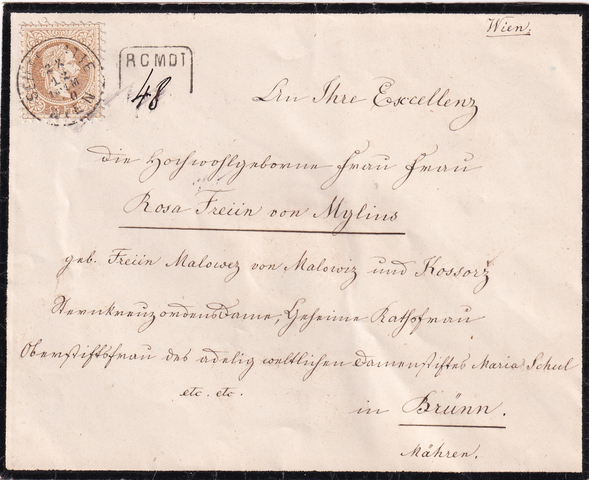 Wien.
RCMDT
48
WIEN
An Ihre Excellenz
die Hochwohlgeborne Frau Frau
Rosa Freiin von Mylius
geb. Freiin Malowez von Malowiz und Kossorz
Sternkreuzordensdame, Geheime Rathsfrau
Oberstiftsfrau des adelig weltlichen Damenstiftes Maria Schul
etc. etc.
in Brünn.
Mähren.